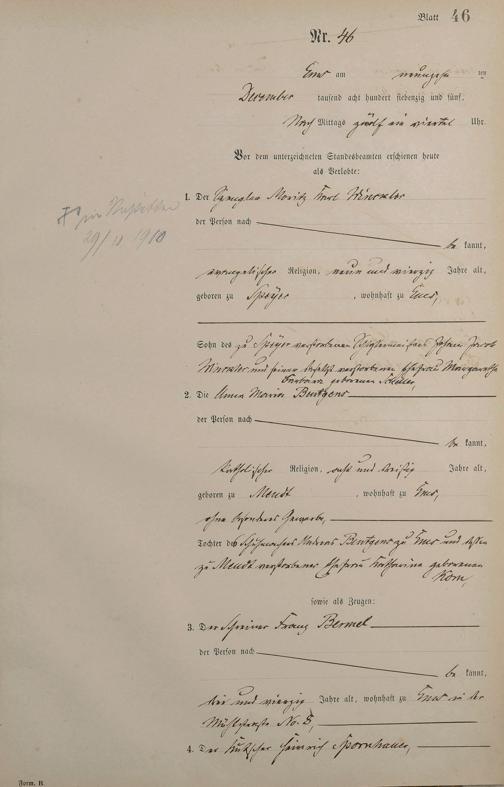 Blatt 46
Nr. 46
Ems am neunzehn ten
December tausend acht hundert siebenzig und fünf,
Nach Mittags zwölf ein viertel Uhr.
Vor dem unterzeichneten Standesbeamten erschienen heute
als Verlobte:
1. Der Spengler Moritz Karl Winckler
der Person nach
be kannt,
evangelischer Religion, neun und vierzig Jahre alt,
geboren zu Speyer, wohnhaft zu Ems,
29/11 1910
Sohn des zu Speyer verstorbenen Johann Jacob
Winckler und seiner daselbst verstorbenen Ehefrau Margaretha
Barbara geborenen
2. Die Anna Maria Bentgens
der Person nach
be kannt,
katholischer Religion, acht und dreißig Jahre alt,
geboren zu Meudt, wohnhaft zu Ems,
ohne besonderes Gewerbe,
Tochter des Schuhmachers Andreas Bentgens zu Ems und dessen
zu Meudt verstorbener Ehefrau Katharina geborenen
Korn,
sowie als Zeugen:
3. Der Schreiner Franz Bermel
der Person nach
be kannt,
drei und vierzig Jahre alt, wohnhaft zu Ems in der
No. 5,
4. Der Kutscher Heinrich Spornhauer,
Form. B.